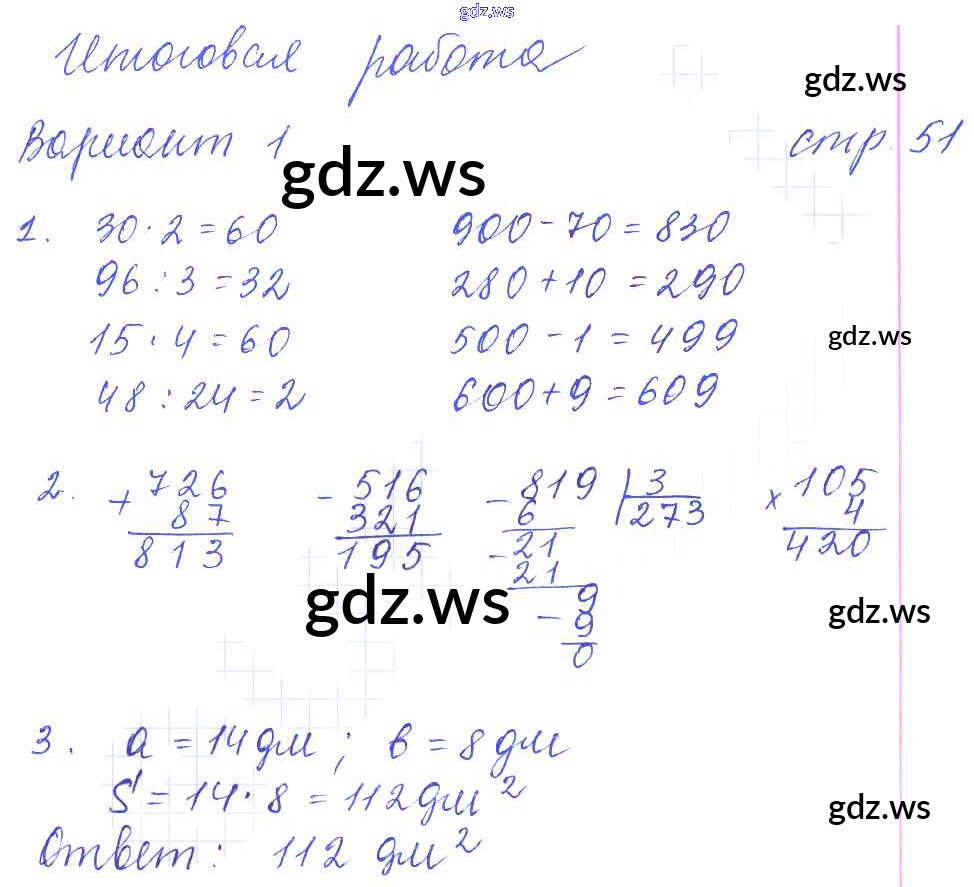 gdz.ws
Итоговая работа
gdz.ws
Вариант 1 стр. 51
gdz.ws
1. 30·2=60 900-70=830
96:3=32 280+10=290
15·4=60 500-1=499
gdz.ws
48:24=2 600+9=609
2. +726 -516 -819 |3 ×105
87 321 6 273 4
813 195 -21 420
21
gdz.ws
9
gdz.ws
-9
0
3. a=14дм; в=8дм
S=14·8=112дм²
gdz.ws
Ответ: 112 дм²